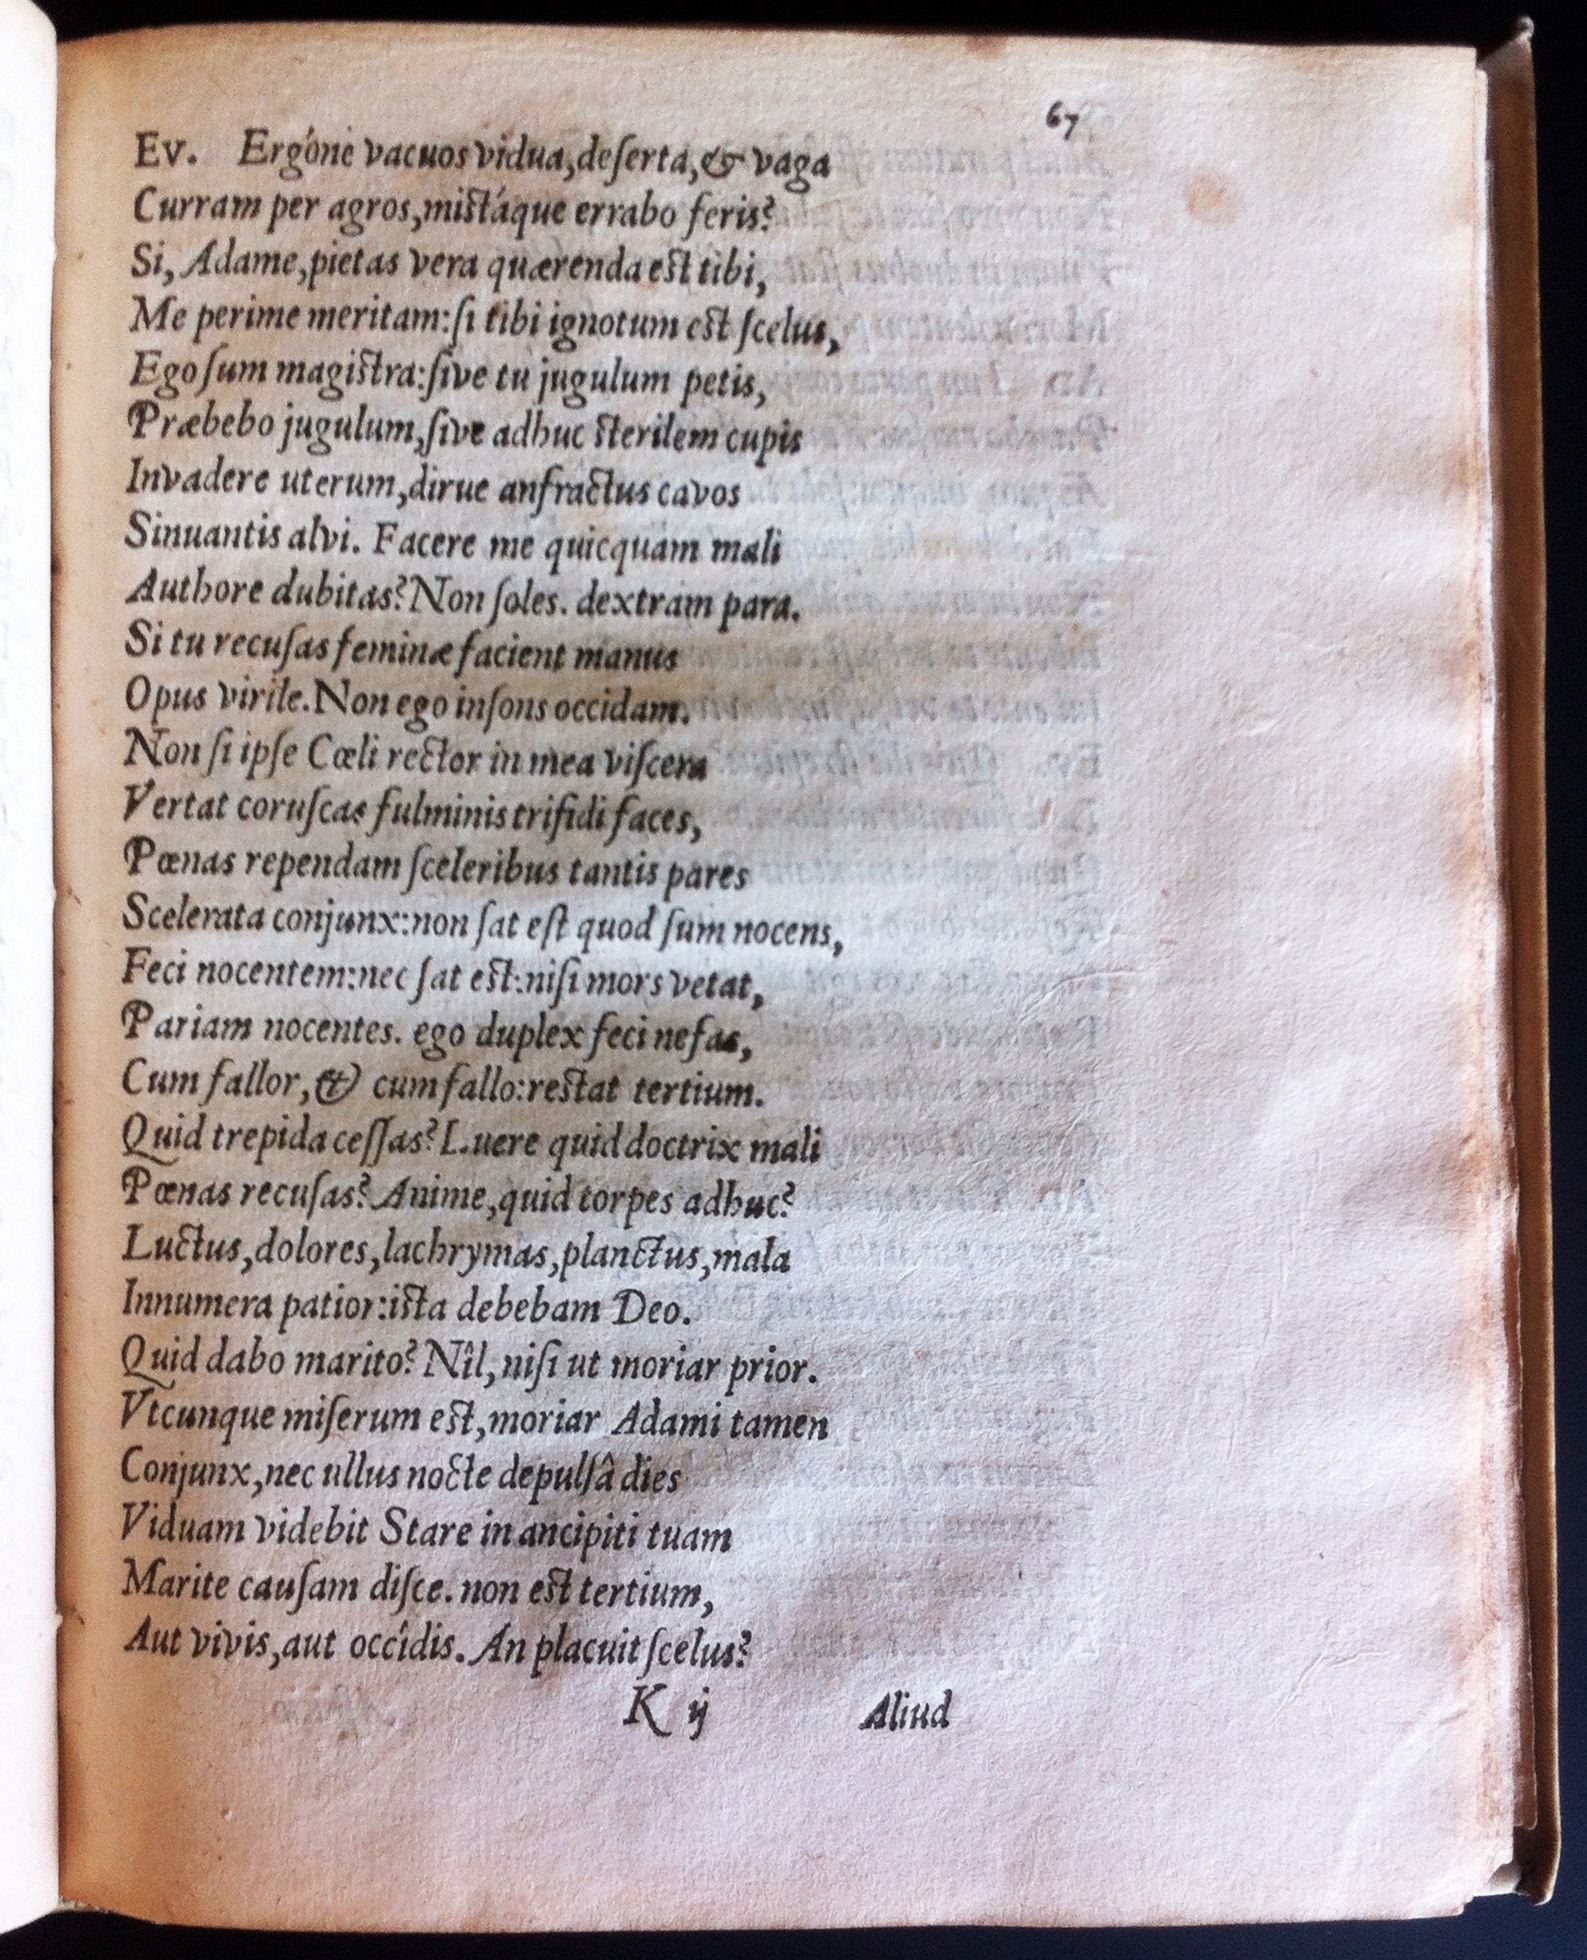 67
Ev. Ergóne vacuos vidua,deſerta,& vaga
Curram per agros,mistáque errabo feris?
Si, Adame,pietas vera quærenda est tibi,
Me perime meritam:ſi tibi ignotum est ſcelus,
Ego ſum magistra:ſive tu jugulum petis,
Præbebo jugulum,ſive adhuc sterilem cupis
Invadere uterum,dirue anfractus cavos
Sinuantis alvi. Facere me quicquam mali
Authore dubitas?Non ſoles. dextram para.
Si tu recuſas feminæ facient manus
Opus virile.Non ego inſons occidam.
Non ſi ipſe Cœli rector in mea viſcera
Vertat coruſcas fulminis trifidi faces,
Pœnas rependam ſceleribus tantis pares
Scelerata conjunx:non ſat eſt quod ſum nocens,
Feci nocentem:nec ſat est:niſi mors vetat,
Pariam nocentes. ego duplex feci nefas,
Cum fallor,& cum fallo:restat tertium.
Quid trepida ceſſas? Luere quid doctrix mali
Pœnas recuſas? Anime,quid torpes adhuc?
Luctus,dolores,lachrymas,planctus,mala
Innumera patior:ista debebam Deo.
Quid dabo marito? Nîl, niſi ut moriar prior.
Vtcunque miſerum est,moriar Adami tamen
Conjunx,nec ullus nocte depulſâ dies
Viduam videbit Stare in ancipiti tuam
Marite cauſam diſce. non est tertium,
Aut vivis,aut occîdis. An placuit ſcelus?
K ij Aliud